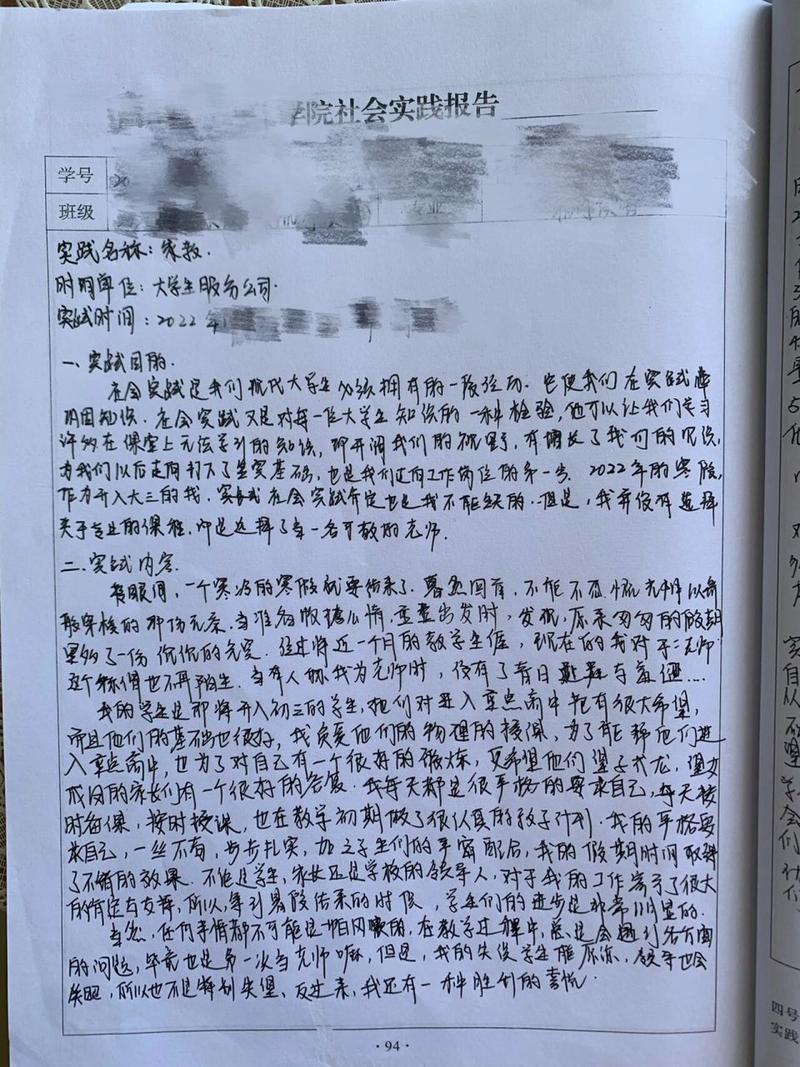 院社会实践报告
学号
班级 专业
实践名称：家教.
时间单位：大学生服务公司.
实践时间：2022年
一、实践目的.
社会实践是我们现代大学生必须拥有的一段经历. 它使我们在实践中
巩固知识. 社会实践又是对每一位大学生知识的一种检验, 它可以让我们学习
许多在课堂上无法学到的知识, 即开阔我们的视野, 有增长了我们的见识,
为我们以后走向打下了坚实基础, 也是我们迈向工作岗位的第一步. 2022年的寒假,
作为升入大三的我. 实践 社会实践肯定也是我不能缺的. 但是, 我并没有选择
关于专业的课程, 而是选择了当一名家教的老师.
二. 实践内容.
转眼间, 一个寒冷的寒假就要结束了. 蓦然回首, 不能不感慨光阴似箭
般穿梭的那份无奈. 当准备收拾心情, 重整出发时, 发现, 原来匆匆的假期
里多了一份 的充实. 经过将近一个月的教学生涯, 现在的我对于"老师"
这个称谓也不再陌生. 当有人称我为老师时, 没有了昔日 与羞涩...
我的学生是即将升入初三的学生, 他们对进入重点高中抱有很大希望,
而且他们的基础也很好, 我负责他们的物理的授课, 为了能帮他们进
入重点高中, 也为了对自己有一个很好的锻炼, 更希望他们望子成龙, 望女
成凤的家长们有一个很好的答复. 我每天都是很严格的要求自己, 每天按
时备课, 按时授课, 也在教学初期做了很认真的教学计划. 我的严格要
求自己, 一丝不苟, 步步扎实, 加之学生们的 配合, 我的假期时间取得
了不错的效果. 不论是学生, 家长还是学校的领导人, 对于我的工作寄予了很大
的肯定与支持, 所以, 等到暑假结束的时候, 学生们的进步是非常明显的.
当然, 任何事情都不可能是一帆风顺的, 在教学过程中, 总是会遇到各方面
的问题, 毕竟也是第一次当老师嘛, 但是, 我的失误学生能原谅, 领导也会
, 所以也不是特别失望、反过来, 我还有一种胜利的喜悦.
· 94 ·
四号
实践